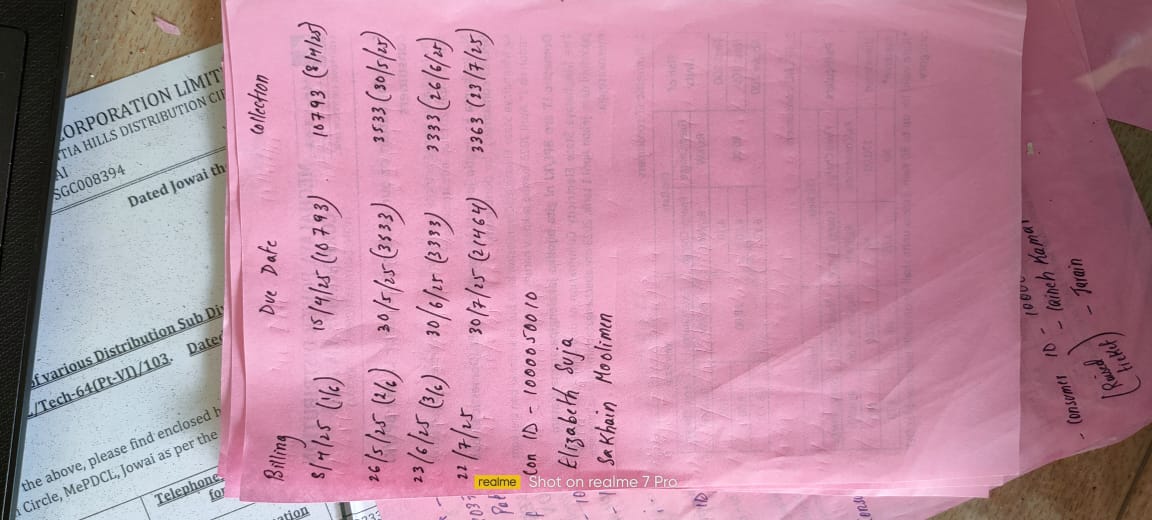 Billing Due Date Collection
8/4/25 (1/6) 15/4/25 (10793) 10793 (8/4/25)
26/5/25 (2/6) 30/5/25 (3533) 3533 (30/5/25)
23/6/25 (3/6) 30/6/25 (3333) 3333 (26/6/25)
22/7/25 30/7/25 (21464) 3363 (23/7/25)
Con ID - 1000050010
Elizabeth Suja
Sakhain Moolimen
CORPORATION LIMIT
TIA HILLS DISTRIBUTION CI
AI
SGC008394
Dated Jowai th
of various Distribution Sub Di
/Tech-64(Pt-VI)/103. Dated
the above, please find enclosed h
Circle, MePDCL, Jowai as per the
Telephone
for
ation
- Consumer ID - 1000
(Raised ticket) - Jarain
ID
realme Shot on realme 7 Pro